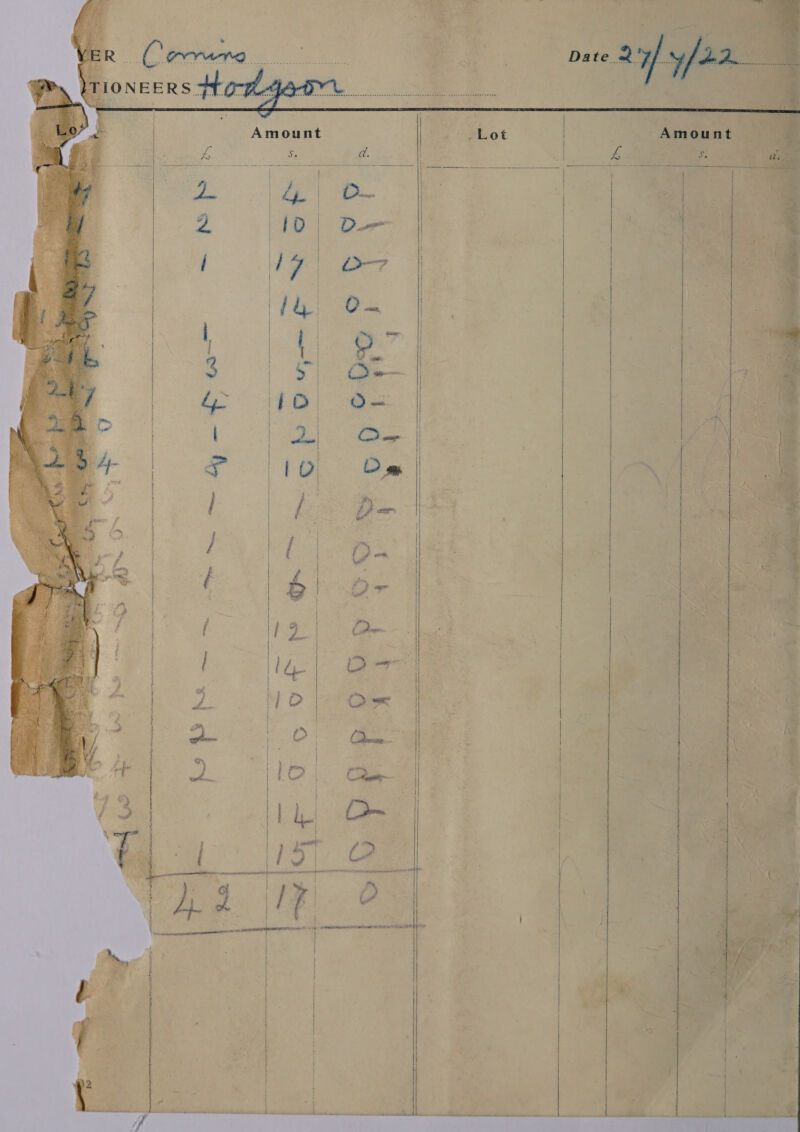 YER Date 27/7/22
TIONEERS Hodgson
Lot Amount Lot Amount
£ s. d. £ s. d.
2 4 0
11 2 10 0
12 1 17 0
27 14 0
128 1 1 0
216 3 5 0
217 4 10 0
220 1 2 0
234 8 10 0
1 1 0
56 1 1 0
1 6 0
59 1 12 0
1 14 0
2 2 10 0
63 2 0 0
64 2 10 0
73 14 0
T 1 15 0
42 17 0